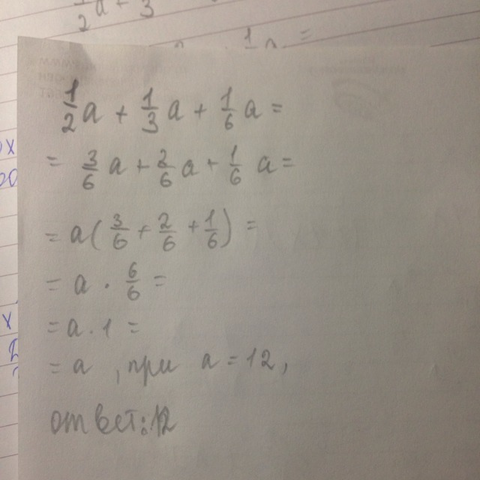 1/2 a + 1/3 a + 1/6 a =
= 3/6 a + 2/6 a + 1/6 a =
= a ( 3/6 + 2/6 + 1/6 ) =
= a · 6/6 =
= a · 1 =
= a , при a = 12 ,
ответ: 12